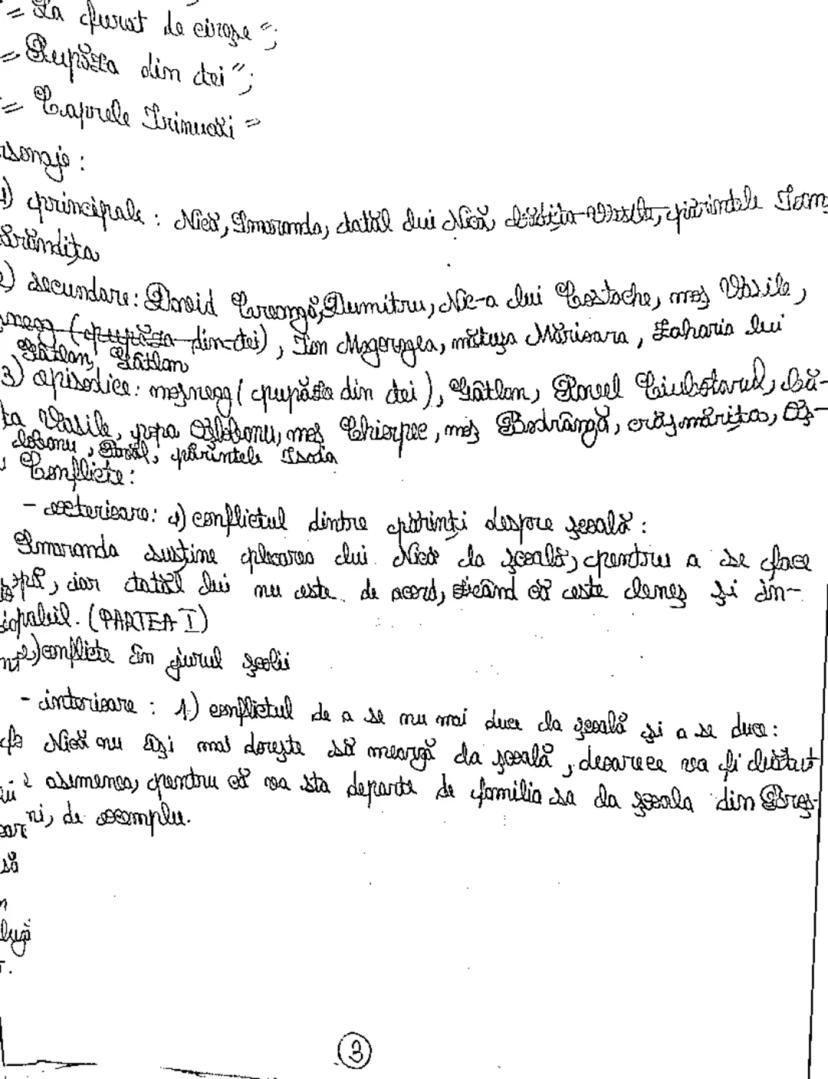 = La furat de cireșe ";
= Pupăza din tei ";
= Caprele Irinucăi =
rsonaje :
1) principale : Nică, Smaranda, tatăl lui Nică, bădița Vasile, părintele Ioan,
Smărăndița
2) secundare: David Creangă, Dumitru, Nic-a lui Costache, moș Vasile,
mosneag (pupăza din tei), Ion Mogorogea, mătușa Mărioara, Zaharia lui
Gâtlan, Gâtlan
3) episodice: moșneag ( pupăza din tei ), Gâtlan, Pavel Ciubotarul, bă-
ța Vasile, popa Oșlobanu, moș Chiorpec, moș Bodrângă, crâșmărița, Oș-
lobanu, părintele Isaia
Conflicte:
- exterioare: 1) conflictul dintre părinți despre școală :
Smaranda susține plecarea lui Nică la școală, pentru a se face
popă, iar tatăl lui nu este de acord, zicând că este leneș și in-
capabil. (PARTEA I)
2) conflicte în jurul școlii
- interioare : 1.) conflictul de a se nu mai duce la școală și a se duce:
Nică nu își mai dorește să meargă la școală, deoarece va fi
asemenea, pentru că va sta departe de familia sa la școala din Broș-
ni, de exemplu.
să
lugă
3